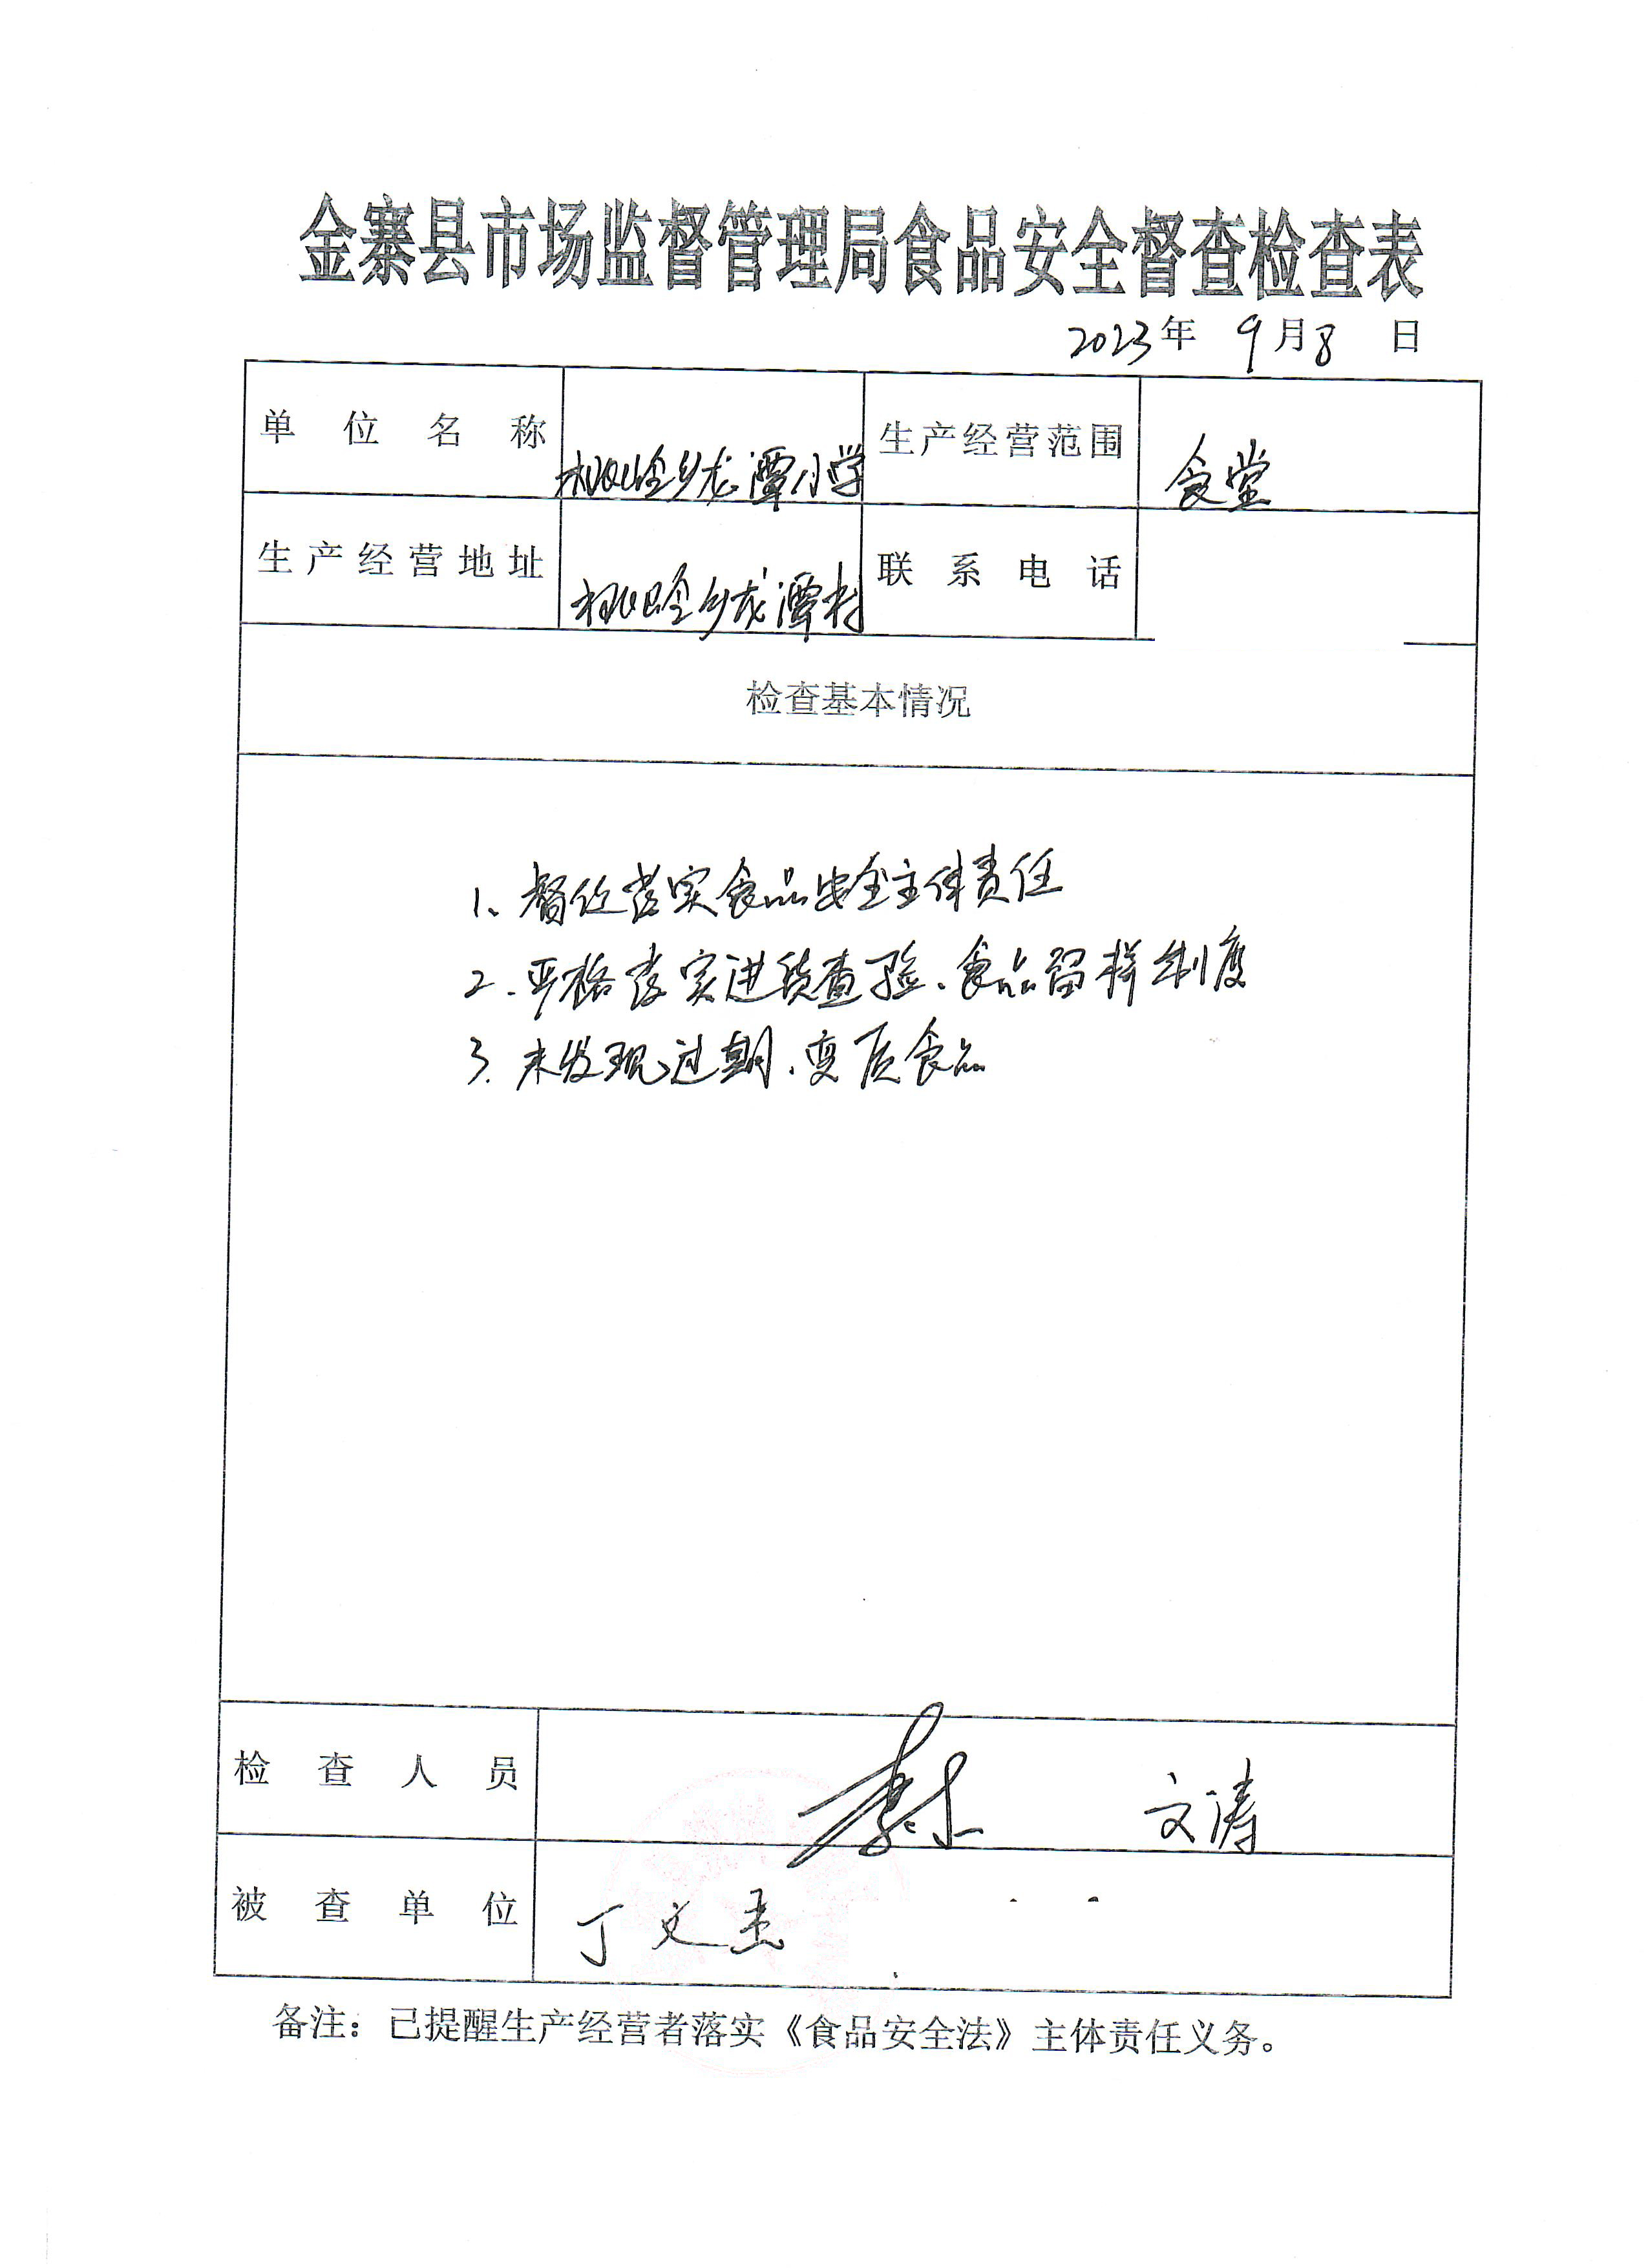 金寨县市场监督管理局食品安全督查检查表
2023年 9月8 日
单位名称 桃岭乡龙潭小学 生产经营范围 食堂
生产经营地址 桃岭乡龙潭村 联系电话
检查基本情况
1、督促落实食品安全主体责任
2、严格落实进货查验、食品留样制度
3、未发现过期、变质食品
检查人员 文涛
被查单位 丁文杰
备注：已提醒生产经营者落实《食品安全法》主体责任义务。